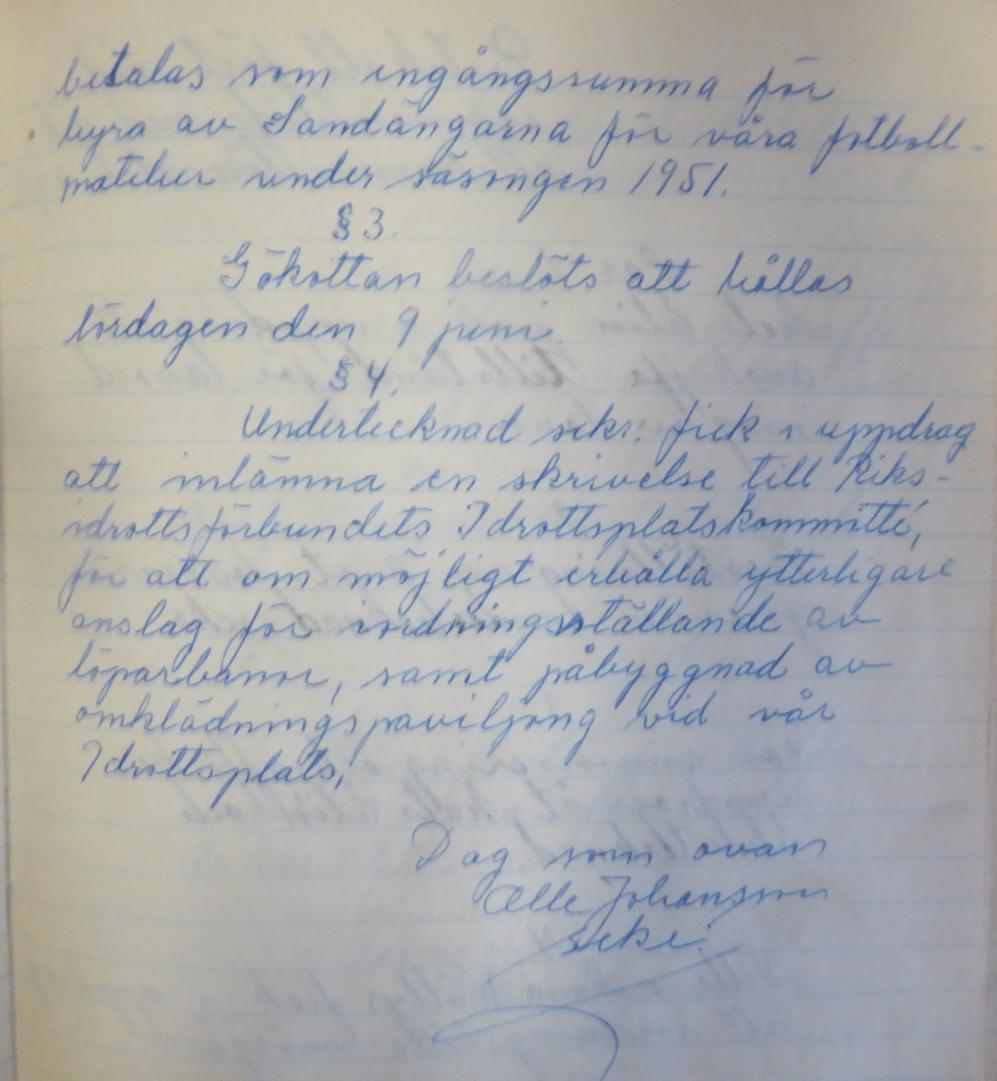 betalas som ingångssumma för
hyra av Sandängarna för våra fotboll-
matcher under säsongen 1951.
§ 3.
Gökottan beslöts att hållas
lördagen den 9 juni.
§ 4.
Undertecknad sekr. fick i uppdrag
att inlämna en skrivelse till Riks-
idrottsförbundets Idrottsplatskommitté,
för att om möjligt erhålla ytterligare
anslag för iordningställande av
löparbanor, samt påbyggnad av
omklädningspaviljong vid vår
Idrottsplats,
Dag som ovan
Olle Johansson
sekr.